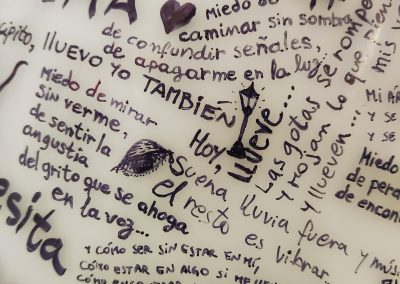 Miedo de
caminar sin sombra,
de confundir señales,
de apagarme en la luz
cipito, llueve yo TAMBIÉN
Miedo de mirar
sin verme,
de sentirla
angustia
del grito que se ahoga
en la voz...
Hoy, llueve...
Las gotas se rompen
y mojan lo que
y llueven...
Suena lluvia fuera y
el resto es vibrar
mis
MI
Y SE
Y SE
Miedo
de
de
esita
Y CÓMO SER SIN ESTAR EN MÍ,
CÓMO ESTAR EN ALGO SI ME